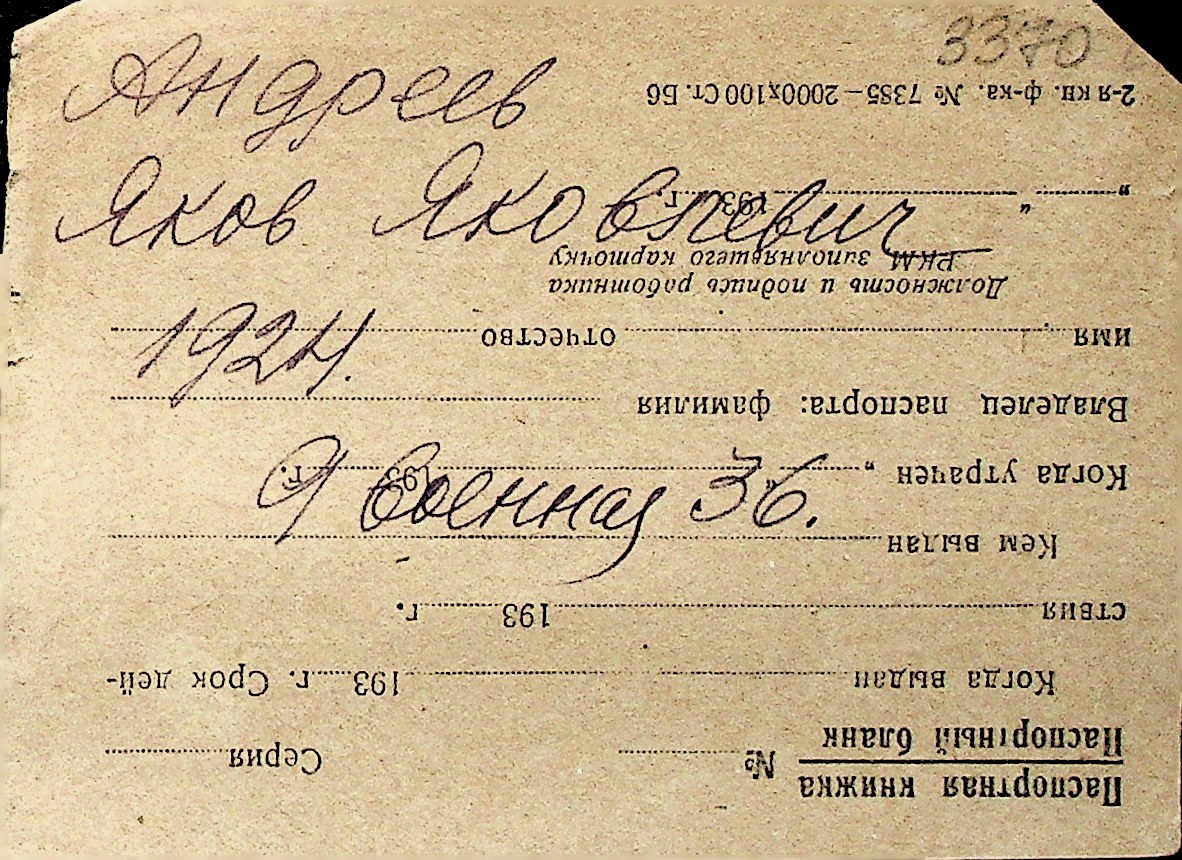 3370
Андреев
Яков Яковлевич
1924.
9 Военная 36.
Паспортная книжка
Паспортный бланк
№ Серия
Когда выдан 193 г. Срок дей-
ствия 193 г.
Кем выдан
Когда утрачен „ “ 193 г.
Владелец паспорта: фамилия
имя отчество
Должность и подпись работника
РКМ заполнявшего карточку
„ “ 193 г.
2-я кн. ф-ка. № 7385—2000х100 Ст. Б6